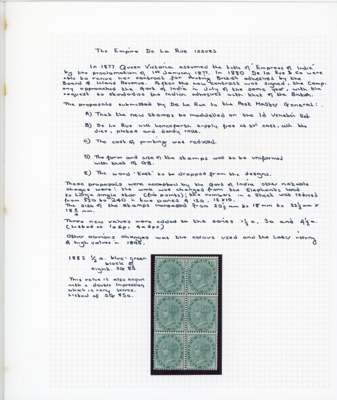 The Empire De La Rue issues
In 1877 Queen Victoria assumed the title of 'Empress of India'
by the proclamation of 1st January 1877. In 1880 De La Rue & Co were
able to renew their contract for printing British adhesives by the
Board of Inland Revenue. After the new contract was signed, the Comp-
any approached the Govt of India in July of the same year, with the
request to standardise the Indian adhesives with that of the British.
The proposals submitted by De La Rue to the Post Master General:-
A) That the new stamps be modelled on the 1d Venetian Red
B) De La Rue will henceforth supply free of cost, all the
dies, plates and handy rolls.
C) The cost of printing was reduced.
D) The form and size of the stamps was to be uniformed
with that of GB.
E) The word 'East' to be dropped from the designs.
These proposals were accepted by the Govt of India. Other notable
changes were: the wmk was changed from the Elephants head
to Single star
from 320 to 240 in two panes of 120.
The size of the stamps
Three new values were added to the series 1½a, 3a and 4½a.
Other obvious changes was the colours used and the later issuing
of high values in 1895.
1883 ½a. blue-green
block of
eight. SG 85
This value is also known
with a double impression
which is very scarce.
Listed at SG 85a.